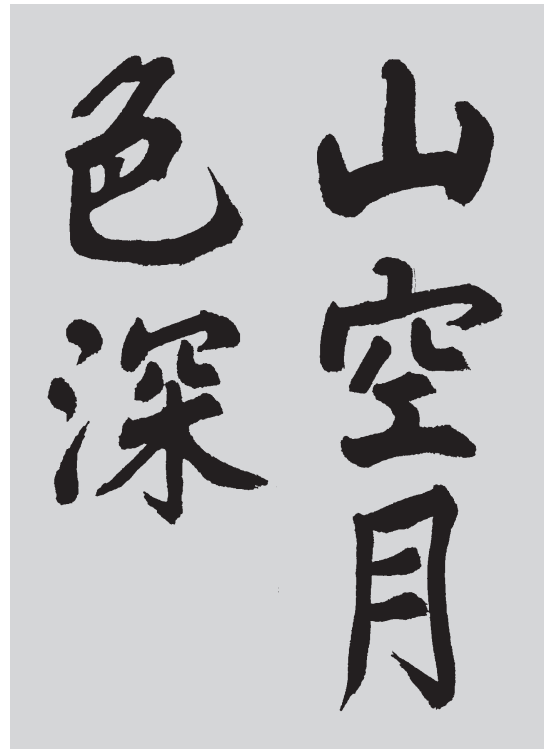 山空月
色深